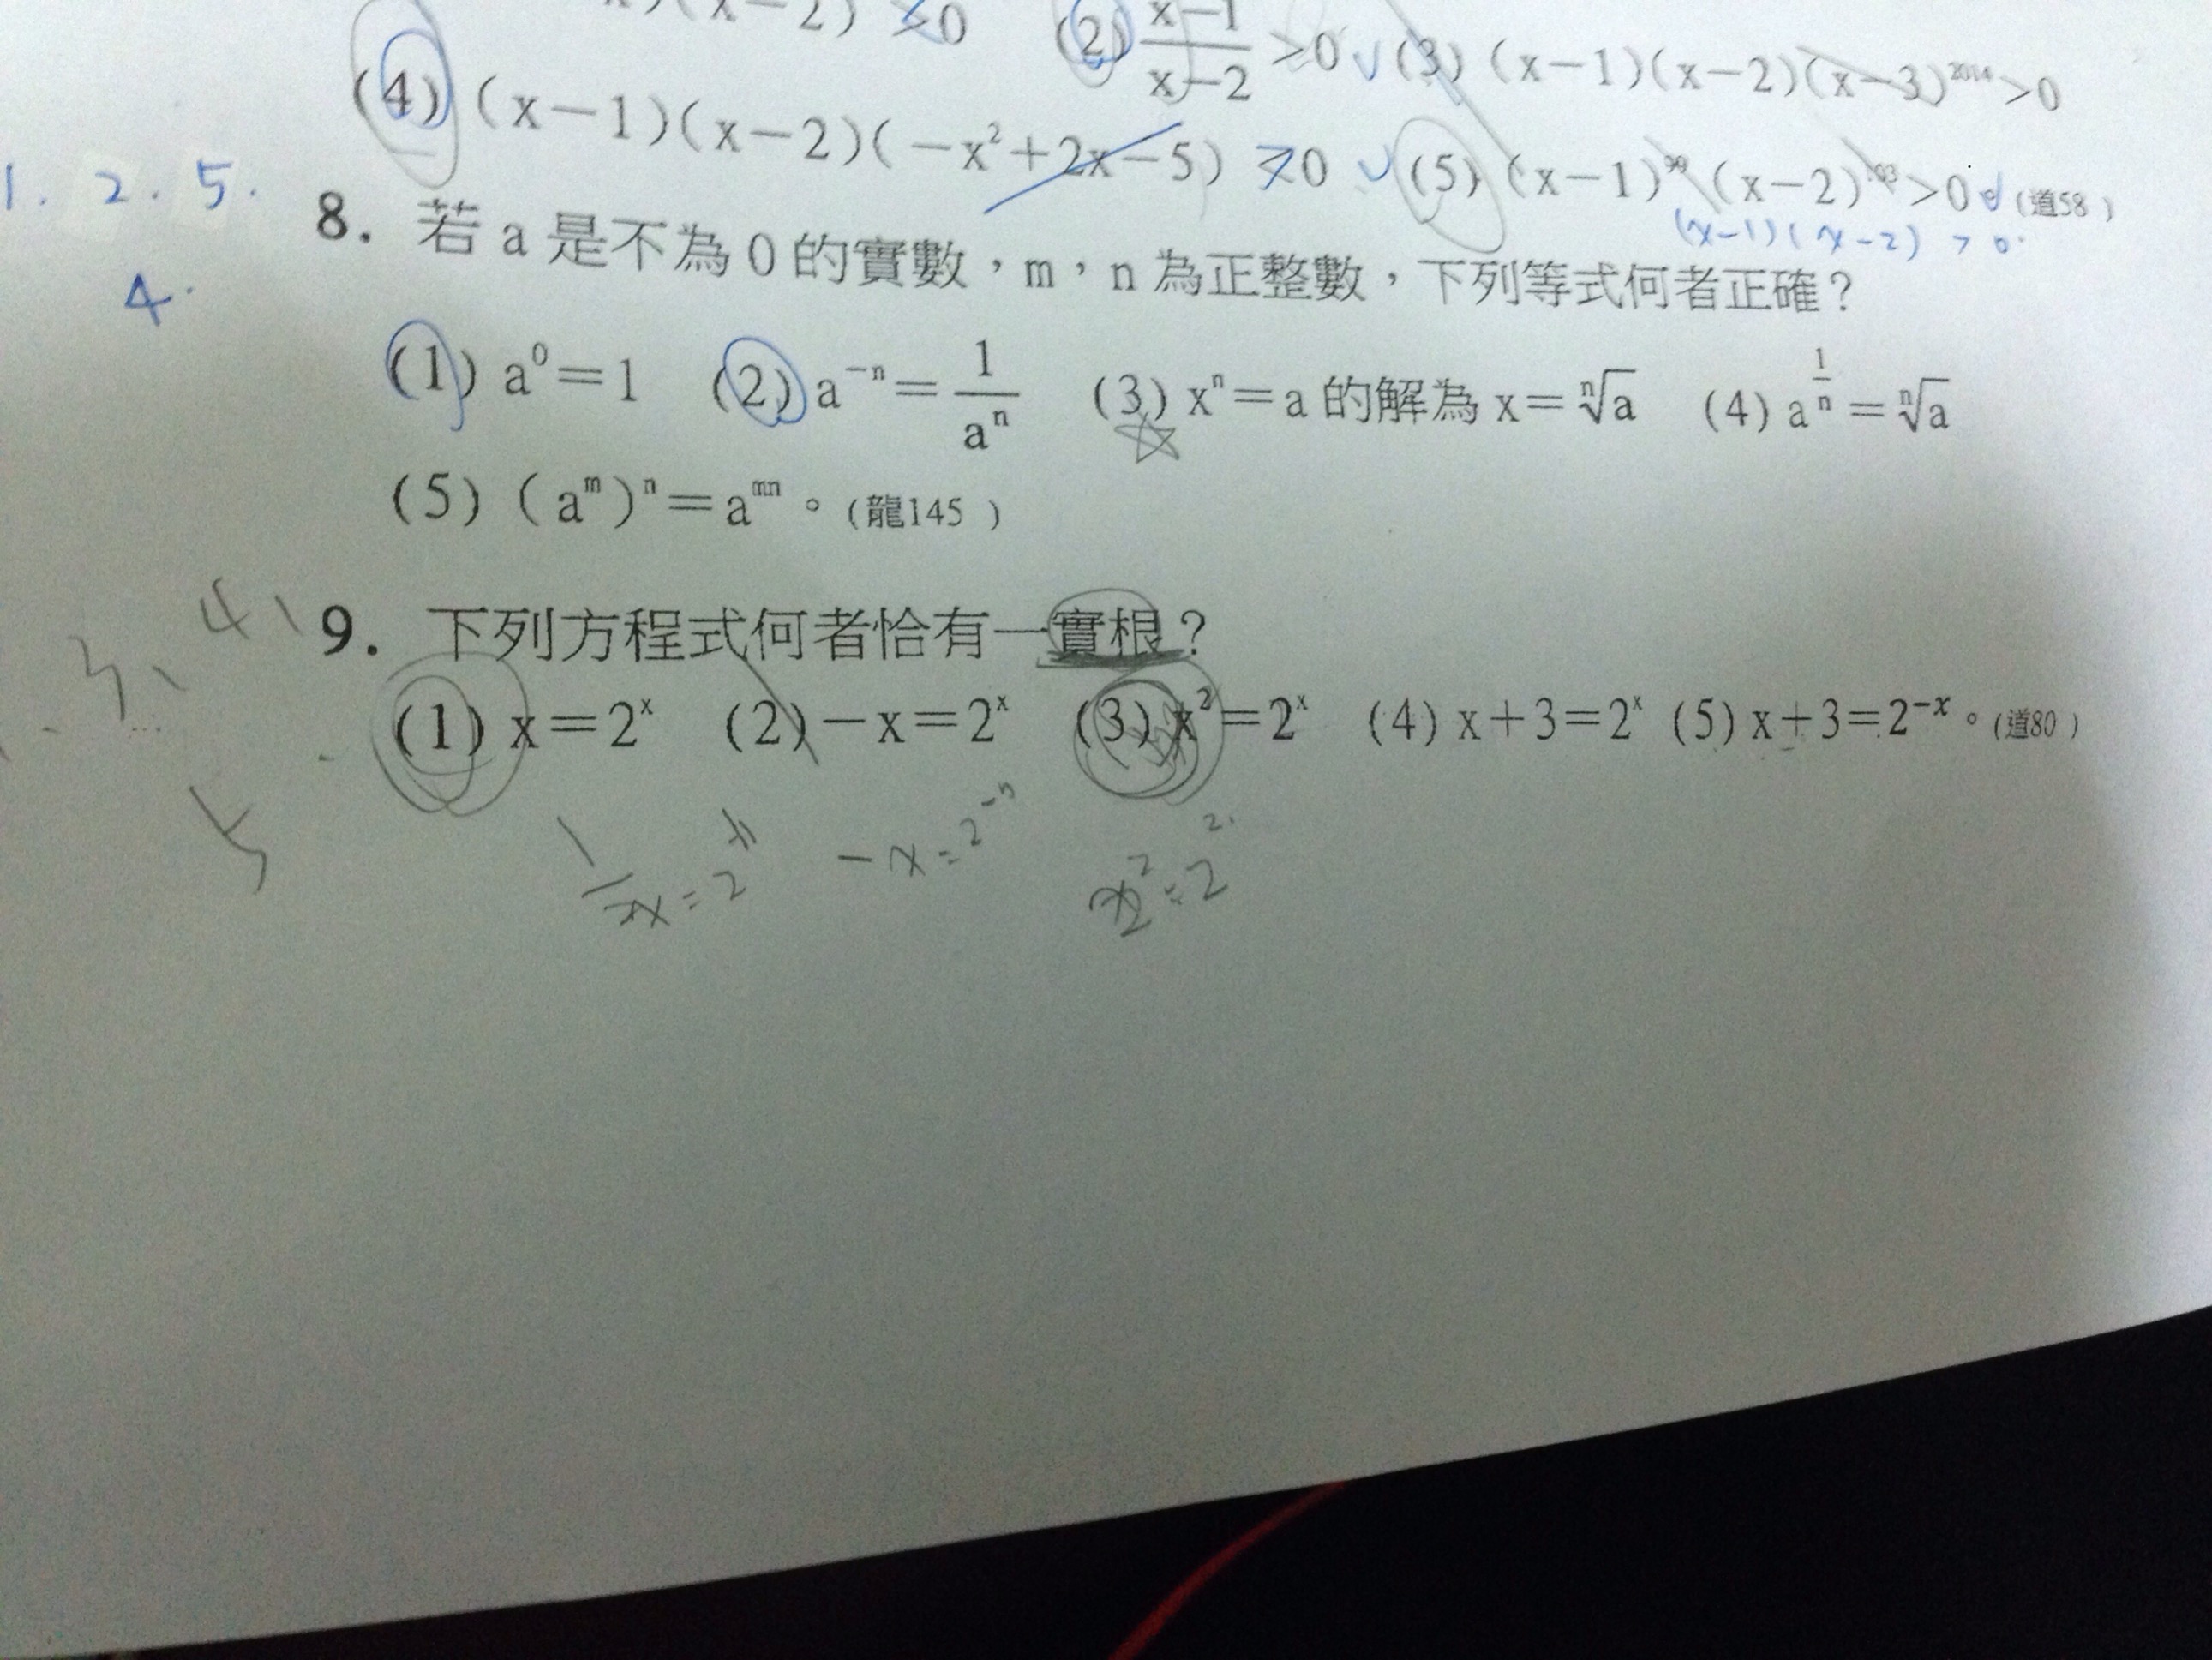 x-2) >0 (2) x-1/x-2 >0 (3) (x-1)(x-2)(x-3)²⁰¹⁴>0
(4) (x-1)(x-2)(-x²+2x-5) >0 (5) (x-1)⁹⁹(x-2) >0。(道58 )
(x-1)(x-2) > 0
1. 2. 5.
4.
8. 若 a 是不為 0 的實數,m,n 為正整數,下列等式何者正確?
(1) a⁰=1 (2) a⁻ⁿ=1/aⁿ (3) xⁿ=a 的解為 x=ⁿ√a (4) a^(1/n)=ⁿ√a
(5) (aᵐ)ⁿ=aᵐⁿ。(龍145 )
4、
9. 下列方程式何者恰有一實根?
(1) x=2ˣ (2) -x=2ˣ (3) x²=2ˣ (4) x+3=2ˣ (5) x+3=2⁻ˣ。(道80 )
5